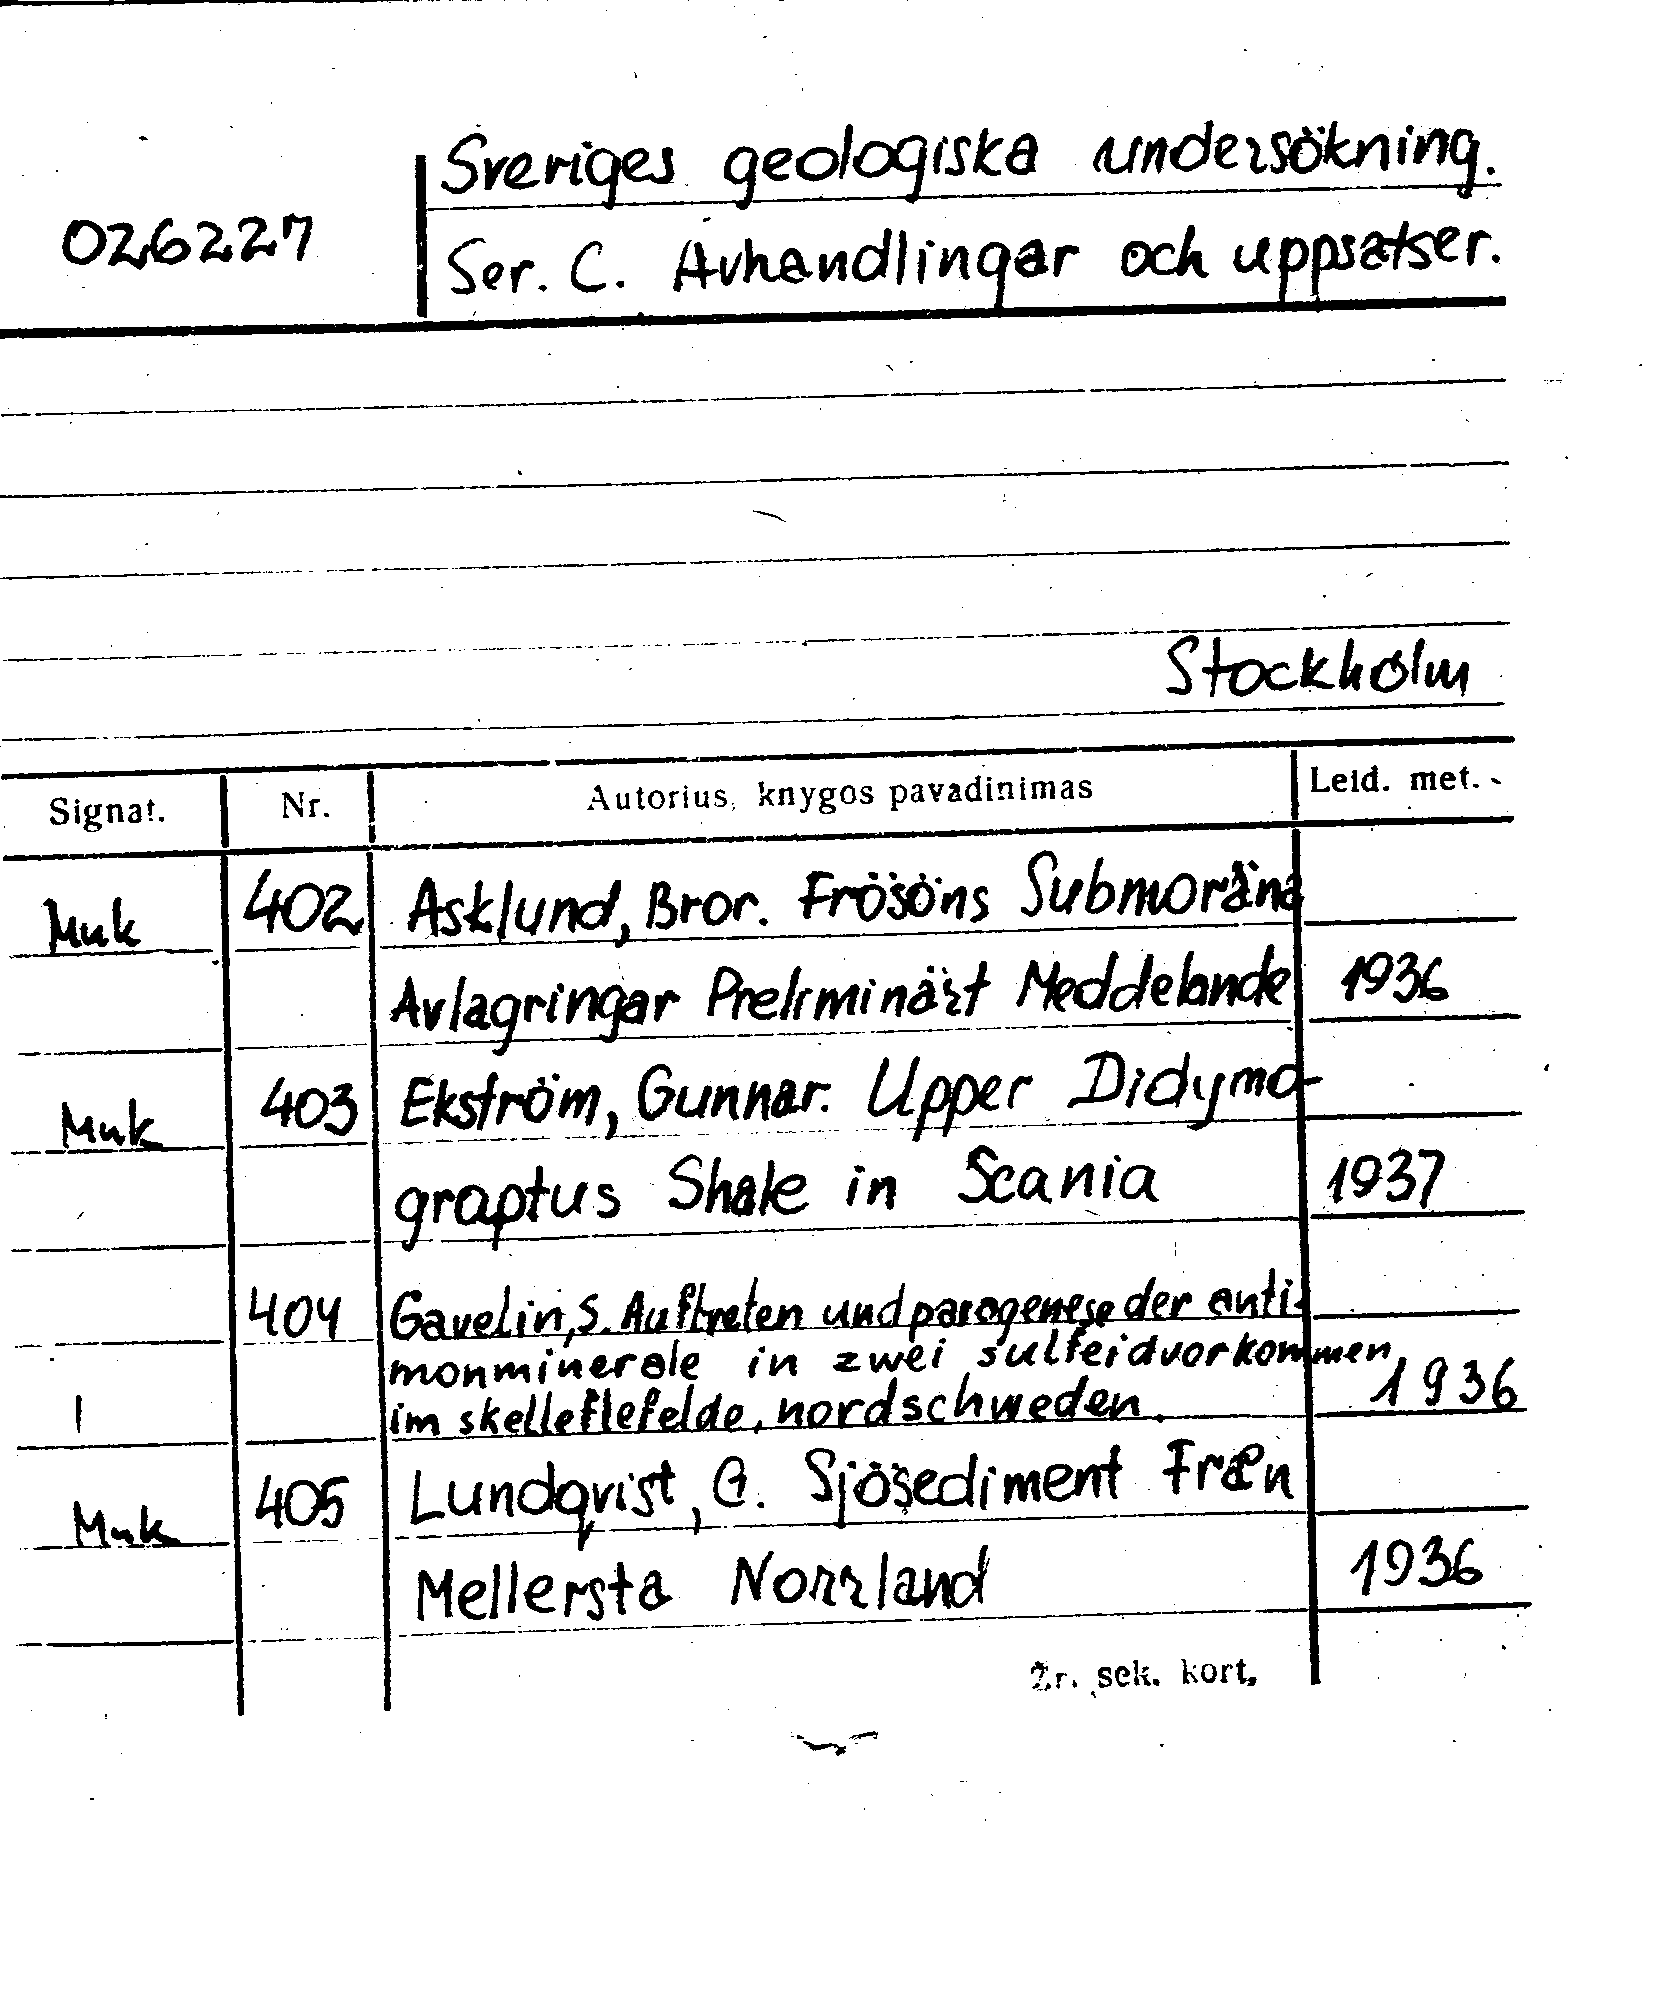 Sveriges geologiska undersökning.
026227
Ser. C. Avhandlingar och uppsatser.
Stockholm
Signat. Nr. Autorius, knygos pavadinimas Leid. met.
Muk 402 Asklund, Bror. Frösöns Submoräna
Avlagringar Preliminärt Meddelande 1936
Muk 403 Ekström, Gunnar. Upper Didymo-
graptus Shale in Scania 1937
404 Gavelin, S. Auftreten und paragenese der anti-
monminerale in zwei sulfeidvorkommen
im skelleftefelde, nordschweden. 1936
Muk 405 Lundqvist, G. Sjösediment Fræn
Mellersta Norrland 1936
Žr. sek. kort.